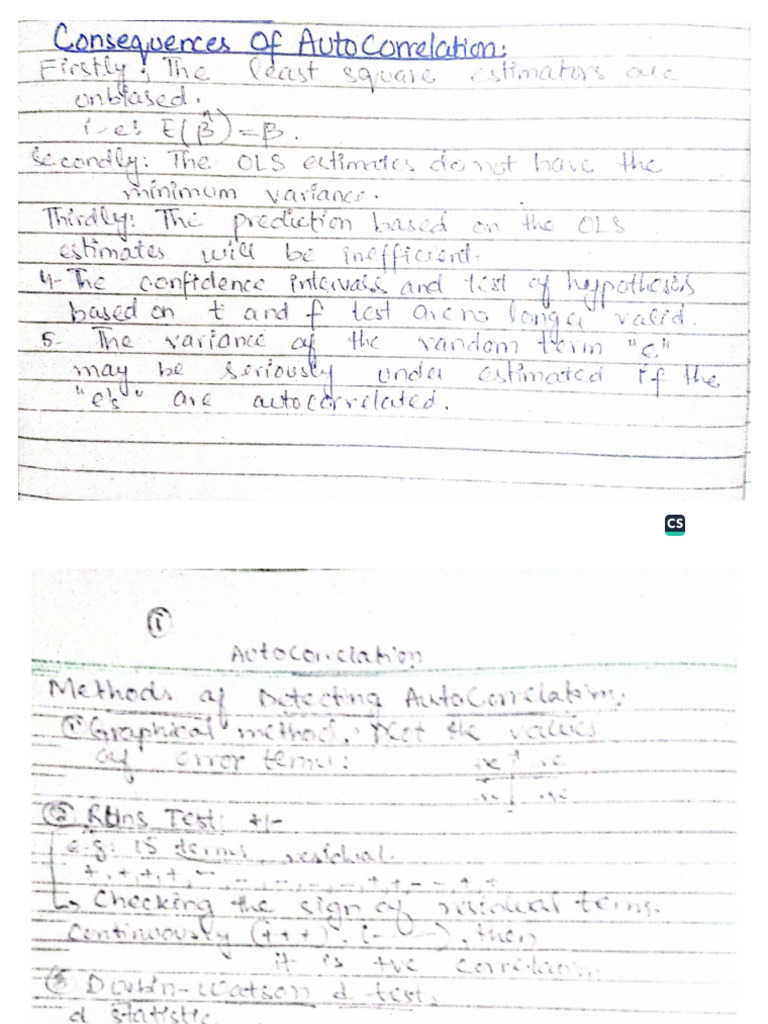 Consequences Of AutoCorrelation:
Firstly; The least square estimators are
unbiased.
i-e! E(β̂) = β.
Secondly: The OLS estimates do not have the
minimum variance.
Thirdly: The prediction based on the OLS
estimates will be inefficient.
4- The confidence intervals and test of hypothesis
based on t and f test are no longer valid.
5- The variance of the random term "e"
may be seriously under estimated if the
"e's" are autocorrelated.
CS
①
Autocorrelation
Methods of Detecting AutoCorrelation:
① Graphical method. Plot the values
of error terms:
② Runs Test: +/-
e.g: 15 terms, residual.
+, +, +, +, -
↳ Checking the sign of residual terms.
Continuously (+++), (---), then
it is +ve correlation.
③ Durbin-Watson d test.
d statistic